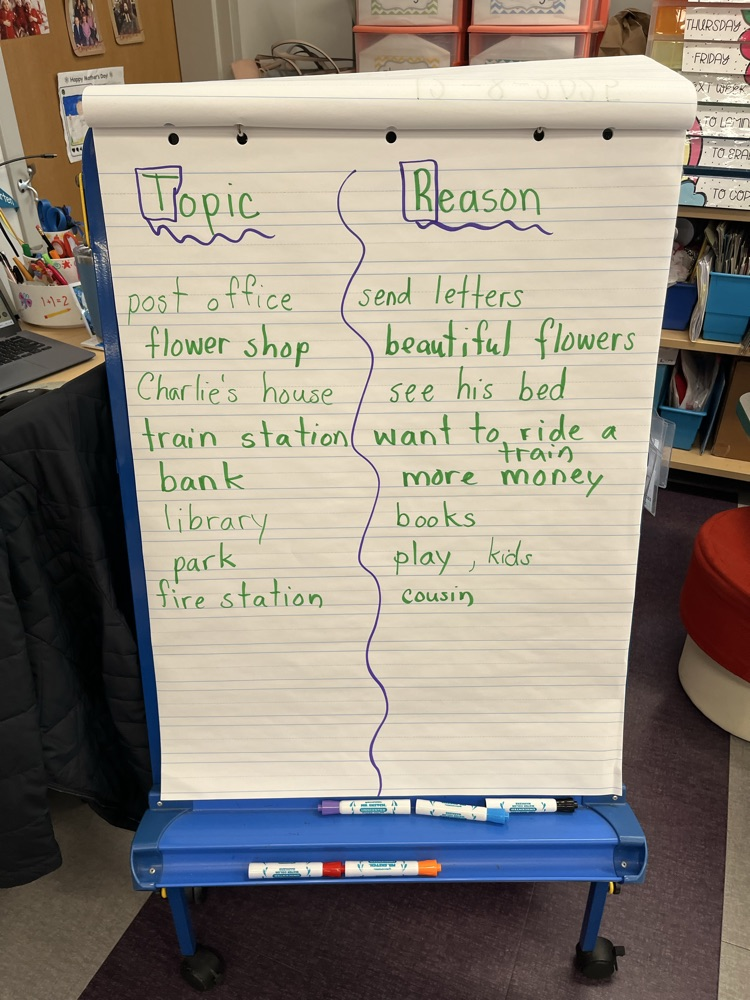 Happy Mother's Day!
THURSDAY
FRIDAY
NEXT WEEK
TO COP
1+1=2
Topic Reason
post office send letters
flower shop beautiful flowers
Charlie's house see his bed
train station want to ride a
train
bank more money
library books
park play, kids
fire station cousin